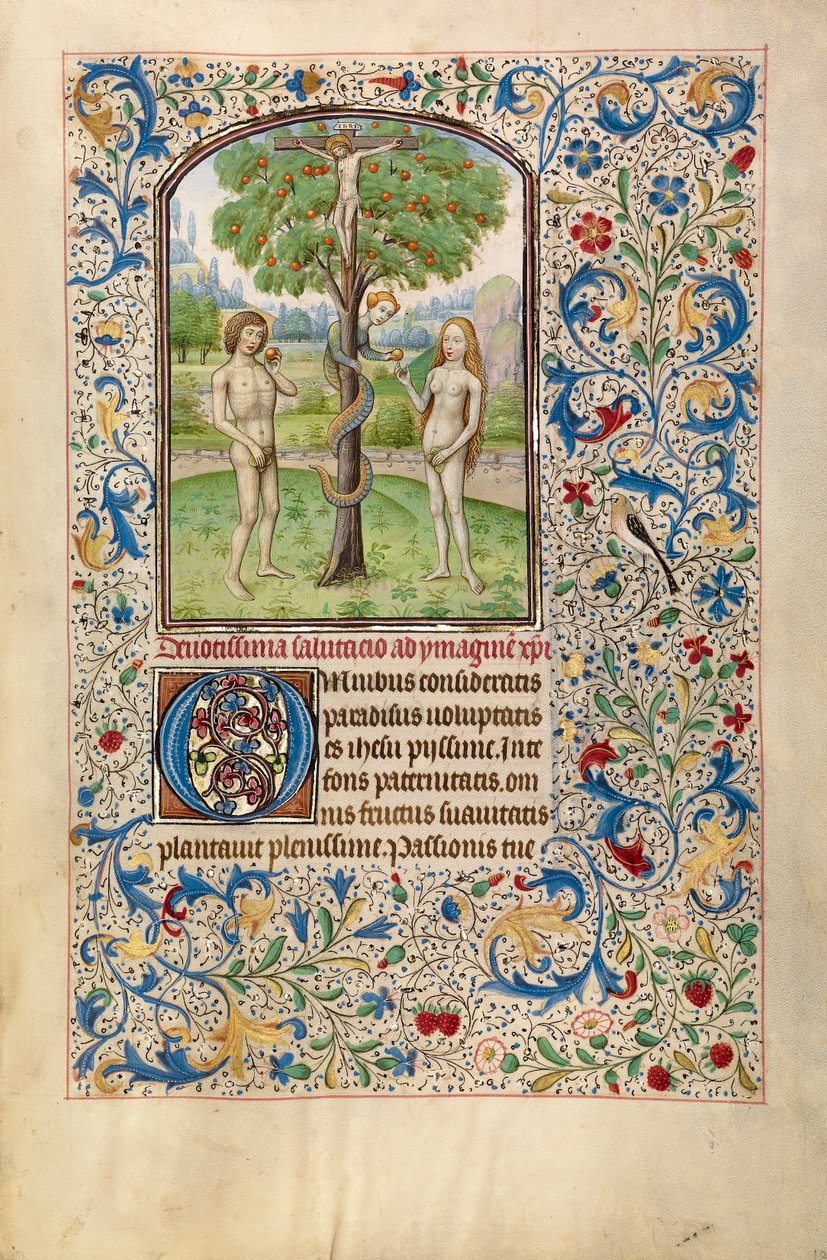 INRI
Deuotissima salutacio ad ymaginē xpi
OMnibus consideratis
paradisus uoluptatis
es ihesu pijssime. Inte
fons paternitatis. om
nis fructus suauitatis
plantauit plenissime. Passionis tue